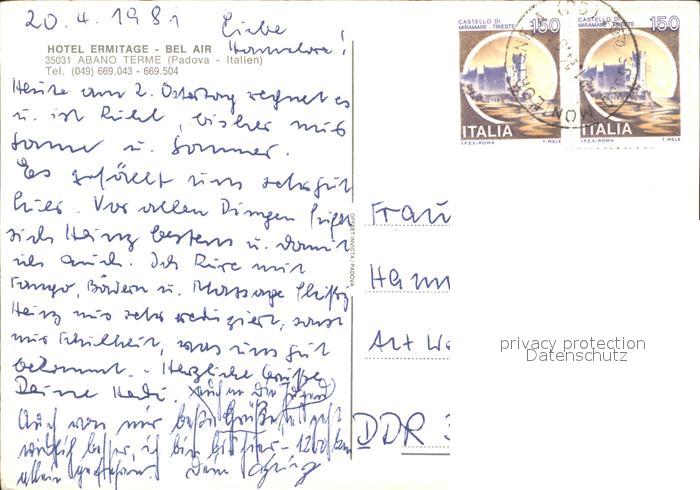 20.4.1981 Liebe
Hannelore!
HOTEL ERMITAGE - BEL AIR
35031 ABANO TERME (Padova - Italien)
Tel. (049) 669.043 - 669.504
Heute am 2. Ostertag regnet es
u. ist kühl, bisher nur
Sonne u. Sommer.
Es gefällt uns sehr gut
hier. Vor allen Dingen fühlt
sich Heinz bestens u. damit
ich auch. Ich kure mit
Fango, Bädern u. Massage fleißig
Heinz nur sehr reduziert, sonst
nur Faulheit, was uns gut
bekommt. Herzliche Grüße
Deine Hedi. Auch an die Jugend
Auch von mir beste Grüße,
wirklich besser, ich bin bis hier - 1200 km
allein gefahren. Dein
CASTELLO DI
MIRAMARE - TRIESTE
150
ITALIA
I.P.Z.S.-ROMA T. MELE
CASTELLO DI
MIRAMARE - TRIESTE
150
ITALIA
I.P.Z.S.-ROMA T. MELE
OFFSET INVICTA / PADOVA
Frau
Hann
Alt We
DDR 3
privacy protection
Datenschutz